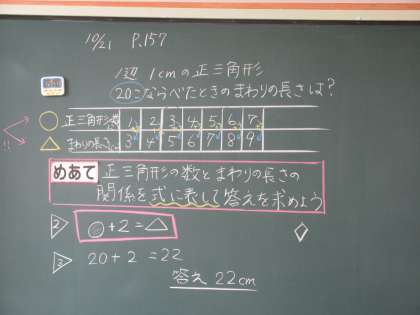 10/21 P.157
1辺 1cmの正三角形
20こならべたときのまわりの長さは?
○ 正三角形の数 1 2 3 4 5 6 7
!! △ まわりの長さ 3 4 5 6 7 8 9
めあて 正三角形の数とまわりの長さの
関係を式に表して答えを求めよう
2 ○+2=△
3 20+2=22
答え 22cm